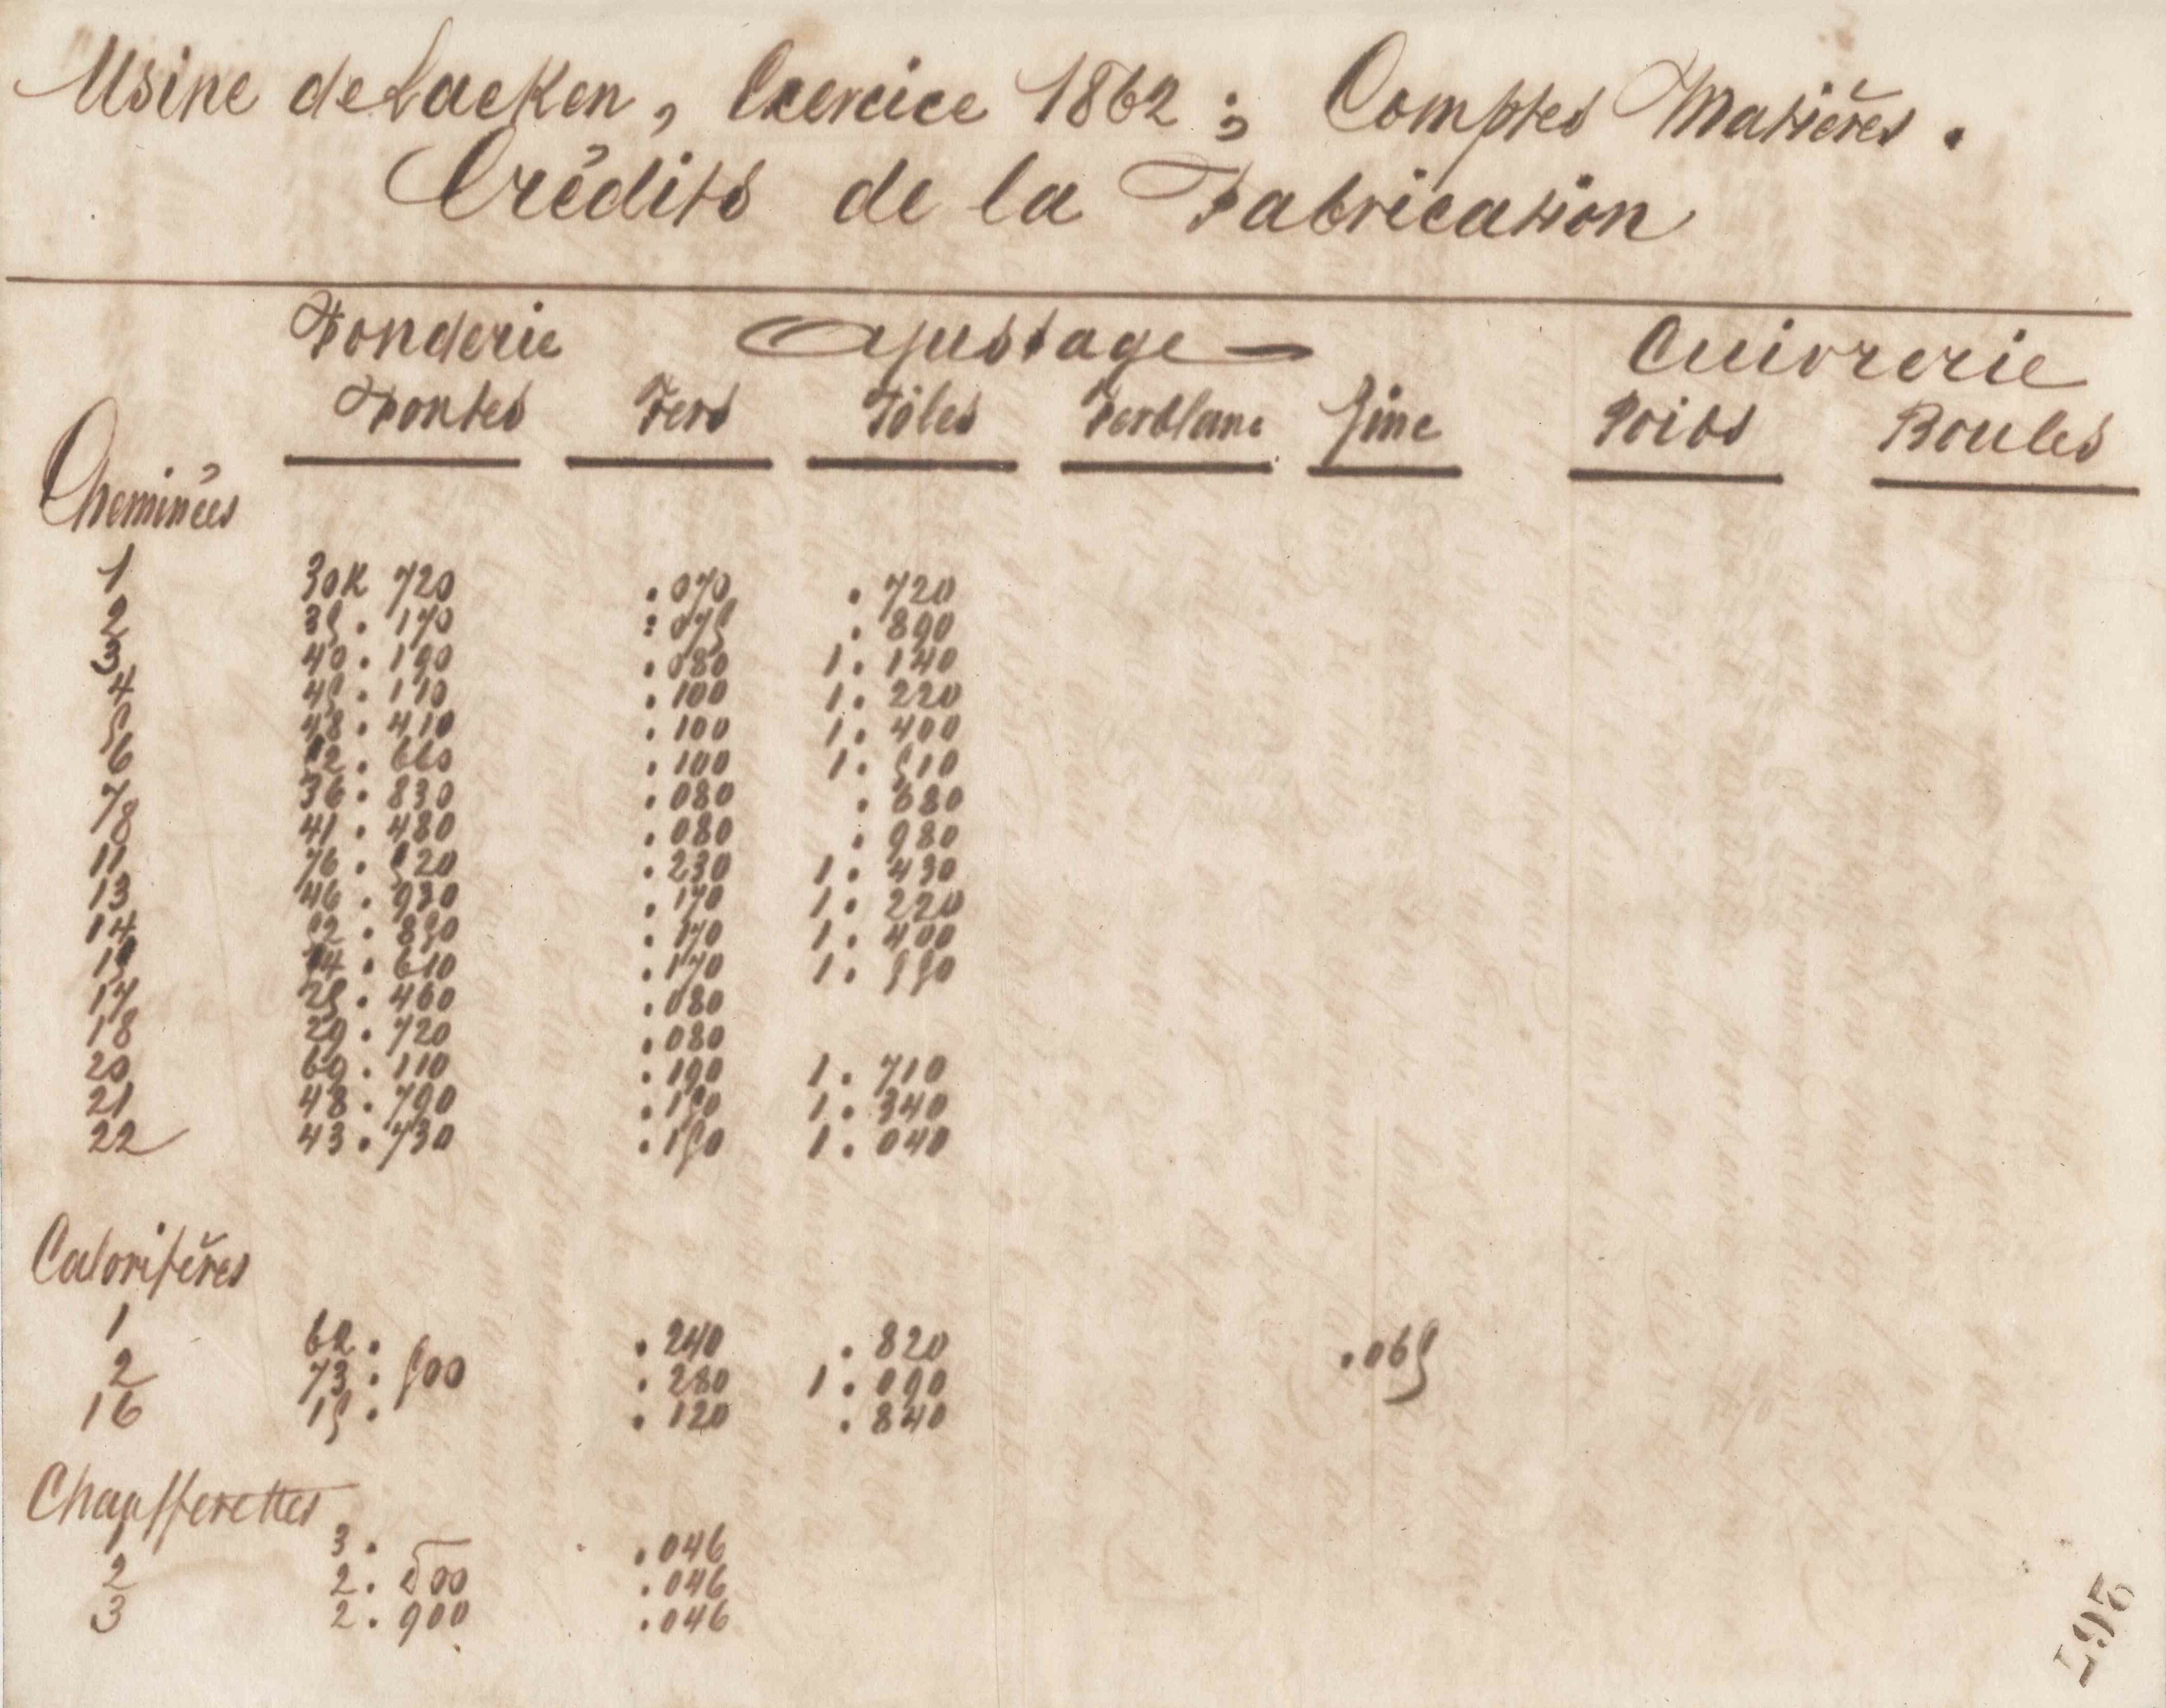 Usine de Laeken, Exercice 1862; Comptes Matières.
Crédits de la Fabrication
Fonderie Ajustage — Cuivrerie
Fontes Fers Tôles Ferblanc Zinc Poids Boules
Cheminées
1 30K 720 .070 .720
2 35.170 .075 .890
3 40.190 .080 1.140
4 45.110 .100 1.220
5 48.410 .100 1.400
6 52.660 .100 1.510
7 36.830 .080 .680
8 41.480 .080 .980
11 76.520 .230 1.430
13 46.930 .170 1.220
14 52.850 .170 1.400
15 54.610 .170 1.550
17 25.460 .080
18 29.720 .080
20 69.110 .190 1.710
21 48.790 .150 1.340
22 43.730 .150 1.040
Calorifères
1 62. .240 .820
2 73.500 .280 1.090 .065
16 15. .120 .840
Chaufferettes
1 3. .046
2 2.500 .046
3 2.900 .046